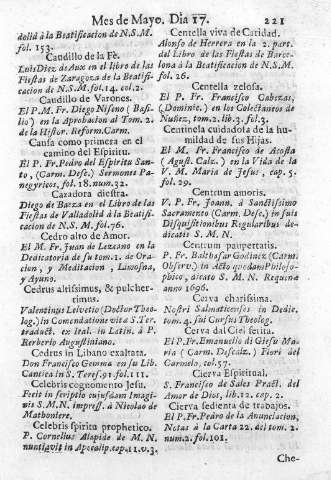 Mes de Mayo. Dia 17. 221
dolid à la Beatificacion de N.S.M.
fol. 153.
Caudillo de la Fè.
Luis Diez de Aux en el libro de las
Fiestas de Zaragoza de la Beatifi-
cacion de N.S.M. fol. 14. col. 2.
Caudillo de Varones.
El P.M. Fr. Diego Niseno (Basi-
lio) en la Aprobacion al Tom. 2.
de la Histor. Reform. Carm.
Causa como primera en el
camino del Espiritu.
El P. Fr. Pedro del Espiritu San-
to, (Carm. Desc.) Sermones Pa-
negyricos, fol. 18. num. 32.
Cazadora diestra.
Diego de Baeza en el Libro de las
Fiestas de Valladolid à la Beatifi-
cacion de N.S.M. fol. 76.
Cedro alto de Amor.
El M. Fr. Juan de Lezano en la
Dedicatoria de su tom. 1. de Ora-
cion, y Meditacion, Limosna,
y Ayuno.
Cedrus altissimus, & pulcher-
rimus.
Valentinus Leivetio (Doctor Theo-
log.) in Comendatione vitæ S. Ter.
traduct. ex Ital. in Latin. à P.
Kerberio Augustiniano.
Cedrus in Libano exaltata.
Don Francisco Gemma en su Lib.
Cantica in S. Teres. 91. fol. 111.
Celebris cognomento Jesu.
Fecit in scriptio cujusdam Imagi-
nis S. M. N. impress. à Nicolao de
Mathoniere.
Celebris spiritu prophetico.
P. Cornelius Alapide de M. N.
nuntiavit in Apocalip. cap. 11. v. 3.
Centella viva de Caridad.
Alonso de Herrera en la 2. part.
del Libro de las Fiestas de Barce-
lona à la Beatificacion de N.S.M.
fol. 26.
Centella zelosa.
El P. Fr. Francisco Cabezas,
(Dominic.) en los Colectaneos de
Nuñez, tom. 2. lib. 3. fol. 3.
Centinela cuidadota de la hu-
mildad de sus Hijas.
El M. Fr. Francisco de Acosta
(Agust. Calz.) en la Vida de la
V. M. Maria de Jesus, cap. 5.
fol. 29.
Centrum amoris.
V. P. Fr. Joann. à Sanctissimo
Sacramento (Carm. Desc.) in suis
Disquisitionibus Regularibus de-
dicatis S. M. N.
Centrum paupertatis.
P. Fr. Balthasar Godinez (Carm.
Observ.) in Actu quodam Philoso-
phico, dicato S. M. N. Requenæ
anno 1696.
Cerva charissima.
Nostri Salmaticenses in Dedic.
tom. 4. sui Cursus Theolog.
Cerva dal Ciel ferita.
El P. Fr. Emanuello di Giesu Ma-
ria (Carm. Descalz.) Fiori del
Carmelo, col. 57.
Cierva Espiritual.
S. Francisco de Sales Pract. del
Amor de Dios, lib. 12. cap. 2.
Cierva sedienta de trabajos.
El P. Fr. Pedro de la Anunciacion,
Notas à la Carta 22. del tom. 2.
num. 2. fol. 101.
Che-